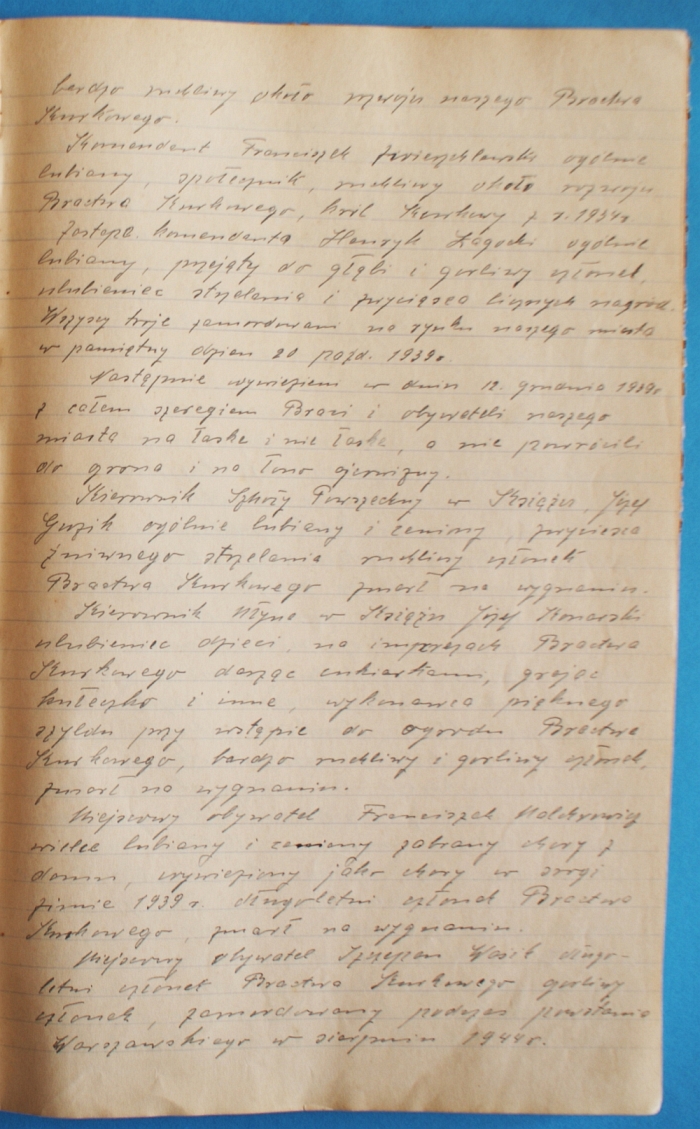 bardzo ruchliwy około rozwoju naszego Bractwa
Kurkowego.
Komendant Franciszek ogólnie
lubiany, społecznik, ruchliwy około rozwoju
Bractwa Kurkowego, król Kurkowy z r. 1934r
Zastępa. komendanta Henryk Łagocki ogólnie
lubiany, przejęty do głębi i gorliwy członek,
ulubieniec strzelania i zwycięsca licznych nagród.
Wszyscy troje zamordowani na rynku naszego miasta
w pamiętny dzien 20 pazd. 1939r
Następnie wywiezieni w dniu 12. grudnia 1939r
z całem szeregiem Braci i obywateli naszego
miasta na łaske i nie łaske, a nie powrócili
do grona i na łono ojcowizny.
Kierownik Szkoły Powszechny w Książu, Józef
Guzik ogólnie lubiany i ceniony, zwycięsca
żniwnego strzelania ruchliwy członek
Bractwa Kurkowego zmarł na wygnaniu.
Kierownik Młyna w Książu Józef Konarski
ulubieniec dzieci, na imprezach Bractwa
Kurkowego darząc cukierkami, grając
kółeczko i inne, wykonawca pięknego
szyldu przy wstąpie do ogrodu Bractwa
Kurkowego, bardzo ruchliwy i gorliwy członek,
zmarł na wygnaniu.
Miejscowy obywatel Franciszek
wielce lubiany i ceniony zabrany chory z
domu, wywieziony jako chory w srogi
zimie 1939 r. długoletni członek Bractwa
Kurkowego, zmarł na wygnaniu.
Miejscowy obywatel Szczepan Wosik długo-
letni członek Bractwa Kurkowego gorliwy
członek, zamordowany podczas powstania
Warszawskiego w sierpniu 1944r.